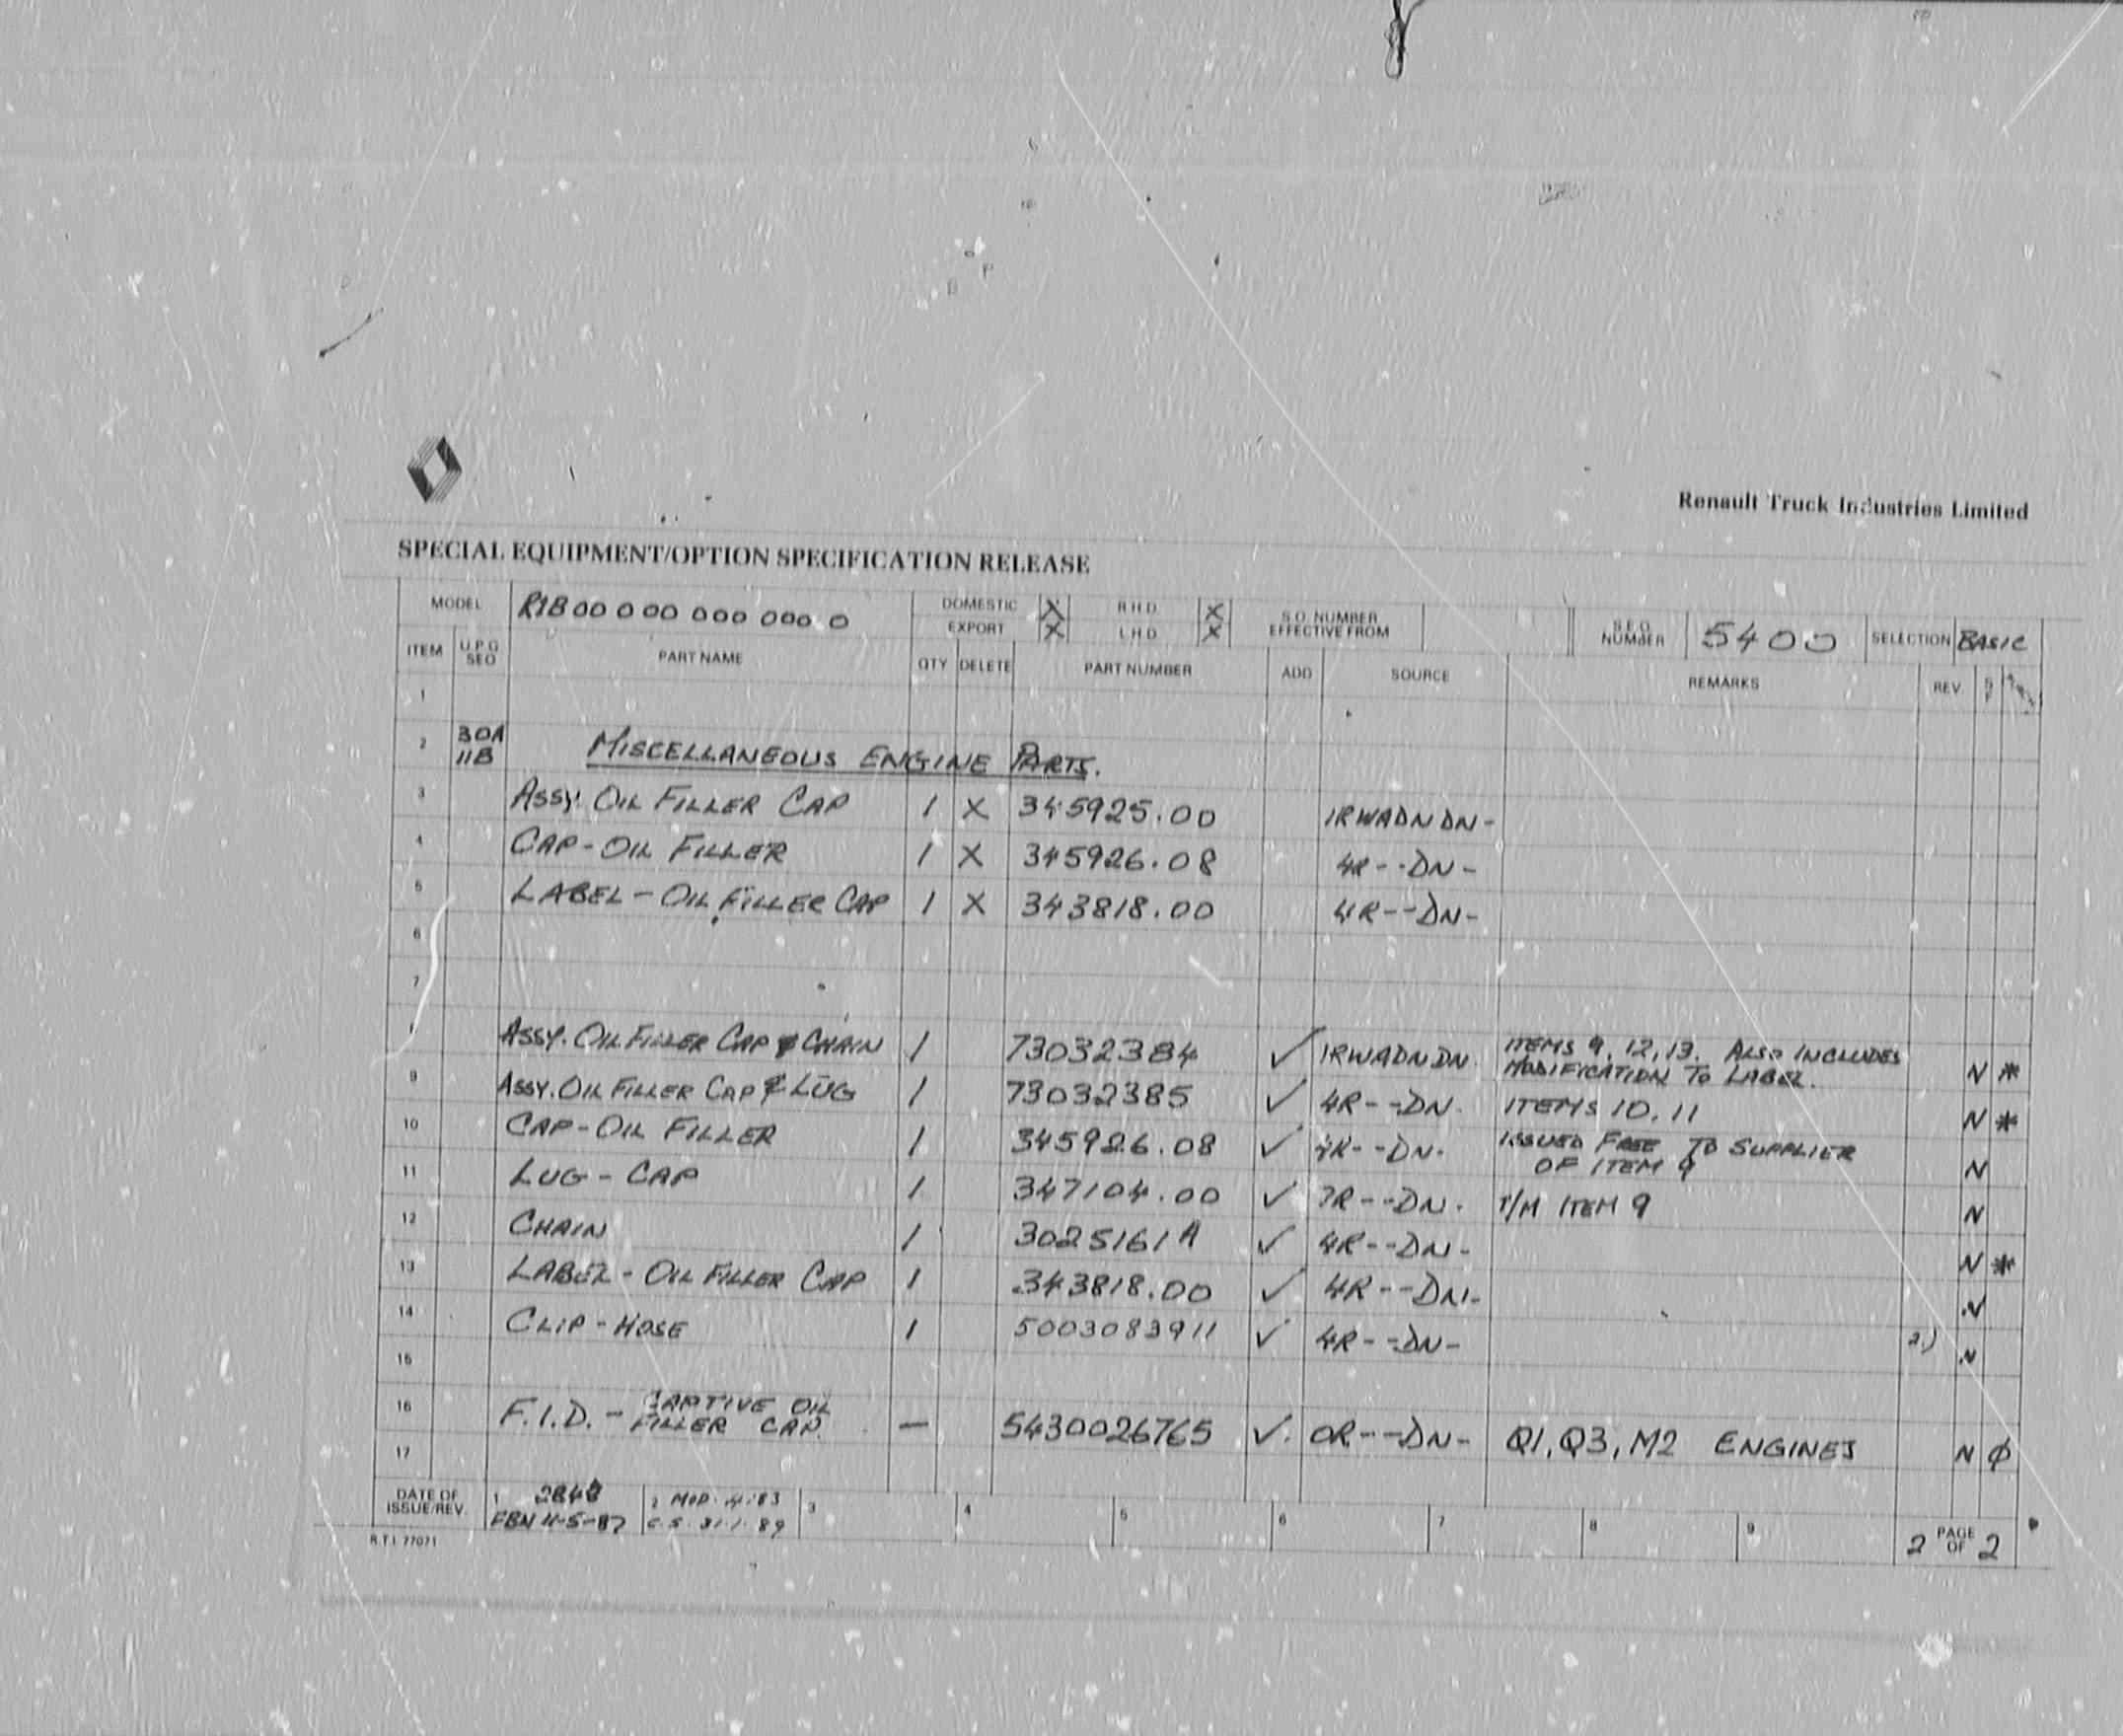 Renault Truck Industries Limited
SPECIAL EQUIPMENT/OPTION SPECIFICATION RELEASE
MODEL R1B00 0 00 000 000 0 DOMESTIC X R.H.D. X S.O. NUMBER EFFECTIVE FROM S.E.O. NUMBER 5400 SELECTION BASIC
EXPORT X L.H.D. X
ITEM U.P.G SEQ PART NAME QTY DELETE PART NUMBER ADD SOURCE REMARKS REV.
1
2 30A 11B MISCELLANEOUS ENGINE PARTS.
3 ASSY. OIL FILLER CAP 1 X 345925.00 1RWADNDN-
4 CAP-OIL FILLER 1 X 345926.08 4R--DN-
5 LABEL-OIL FILLER CAP 1 X 343818.00 4R--DN-
6
7
ASSY. OIL FILLER CAP & CHAIN 1 73032384 ✓ 1RWADNDN. ITEMS 9, 12, 13. ALSO INCLUDES
MODIFICATION TO LABEL. N *
9 ASSY. OIL FILLER CAP & LUG 1 73032385 ✓ 4R--DN. ITEMS 10. 11 N *
10 CAP-OIL FILLER 1 345926.08 ✓ 4R--DN. ISSUED FREE TO SUPPLIER
OF ITEM 9 N
11 LUG-CAP 1 347104.00 ✓ 7R--DN. ITEM 9 N
12 CHAIN 1 3025161A ✓ 4R--DN- N *
13 LABEL-OIL FILLER CAP 1 343818.00 ✓ 4R--DN- N
14 CLIP-HOSE 1 5003083911 ✓ 4R--DN- 2.) N
15
16 F.I.D.- CAPTIVE OIL
FILLER CAP. — 5430026765 ✓ 0R--DN- Q1, Q3, M2 ENGINES N ϕ
17
DATE OF ISSUE/REV. 1 2 MOD. 3 4 5 6 7 8 9
FBN 11-5-87 C.S. 31.1.89
2 PAGE OF 2
R.T.I. 77071